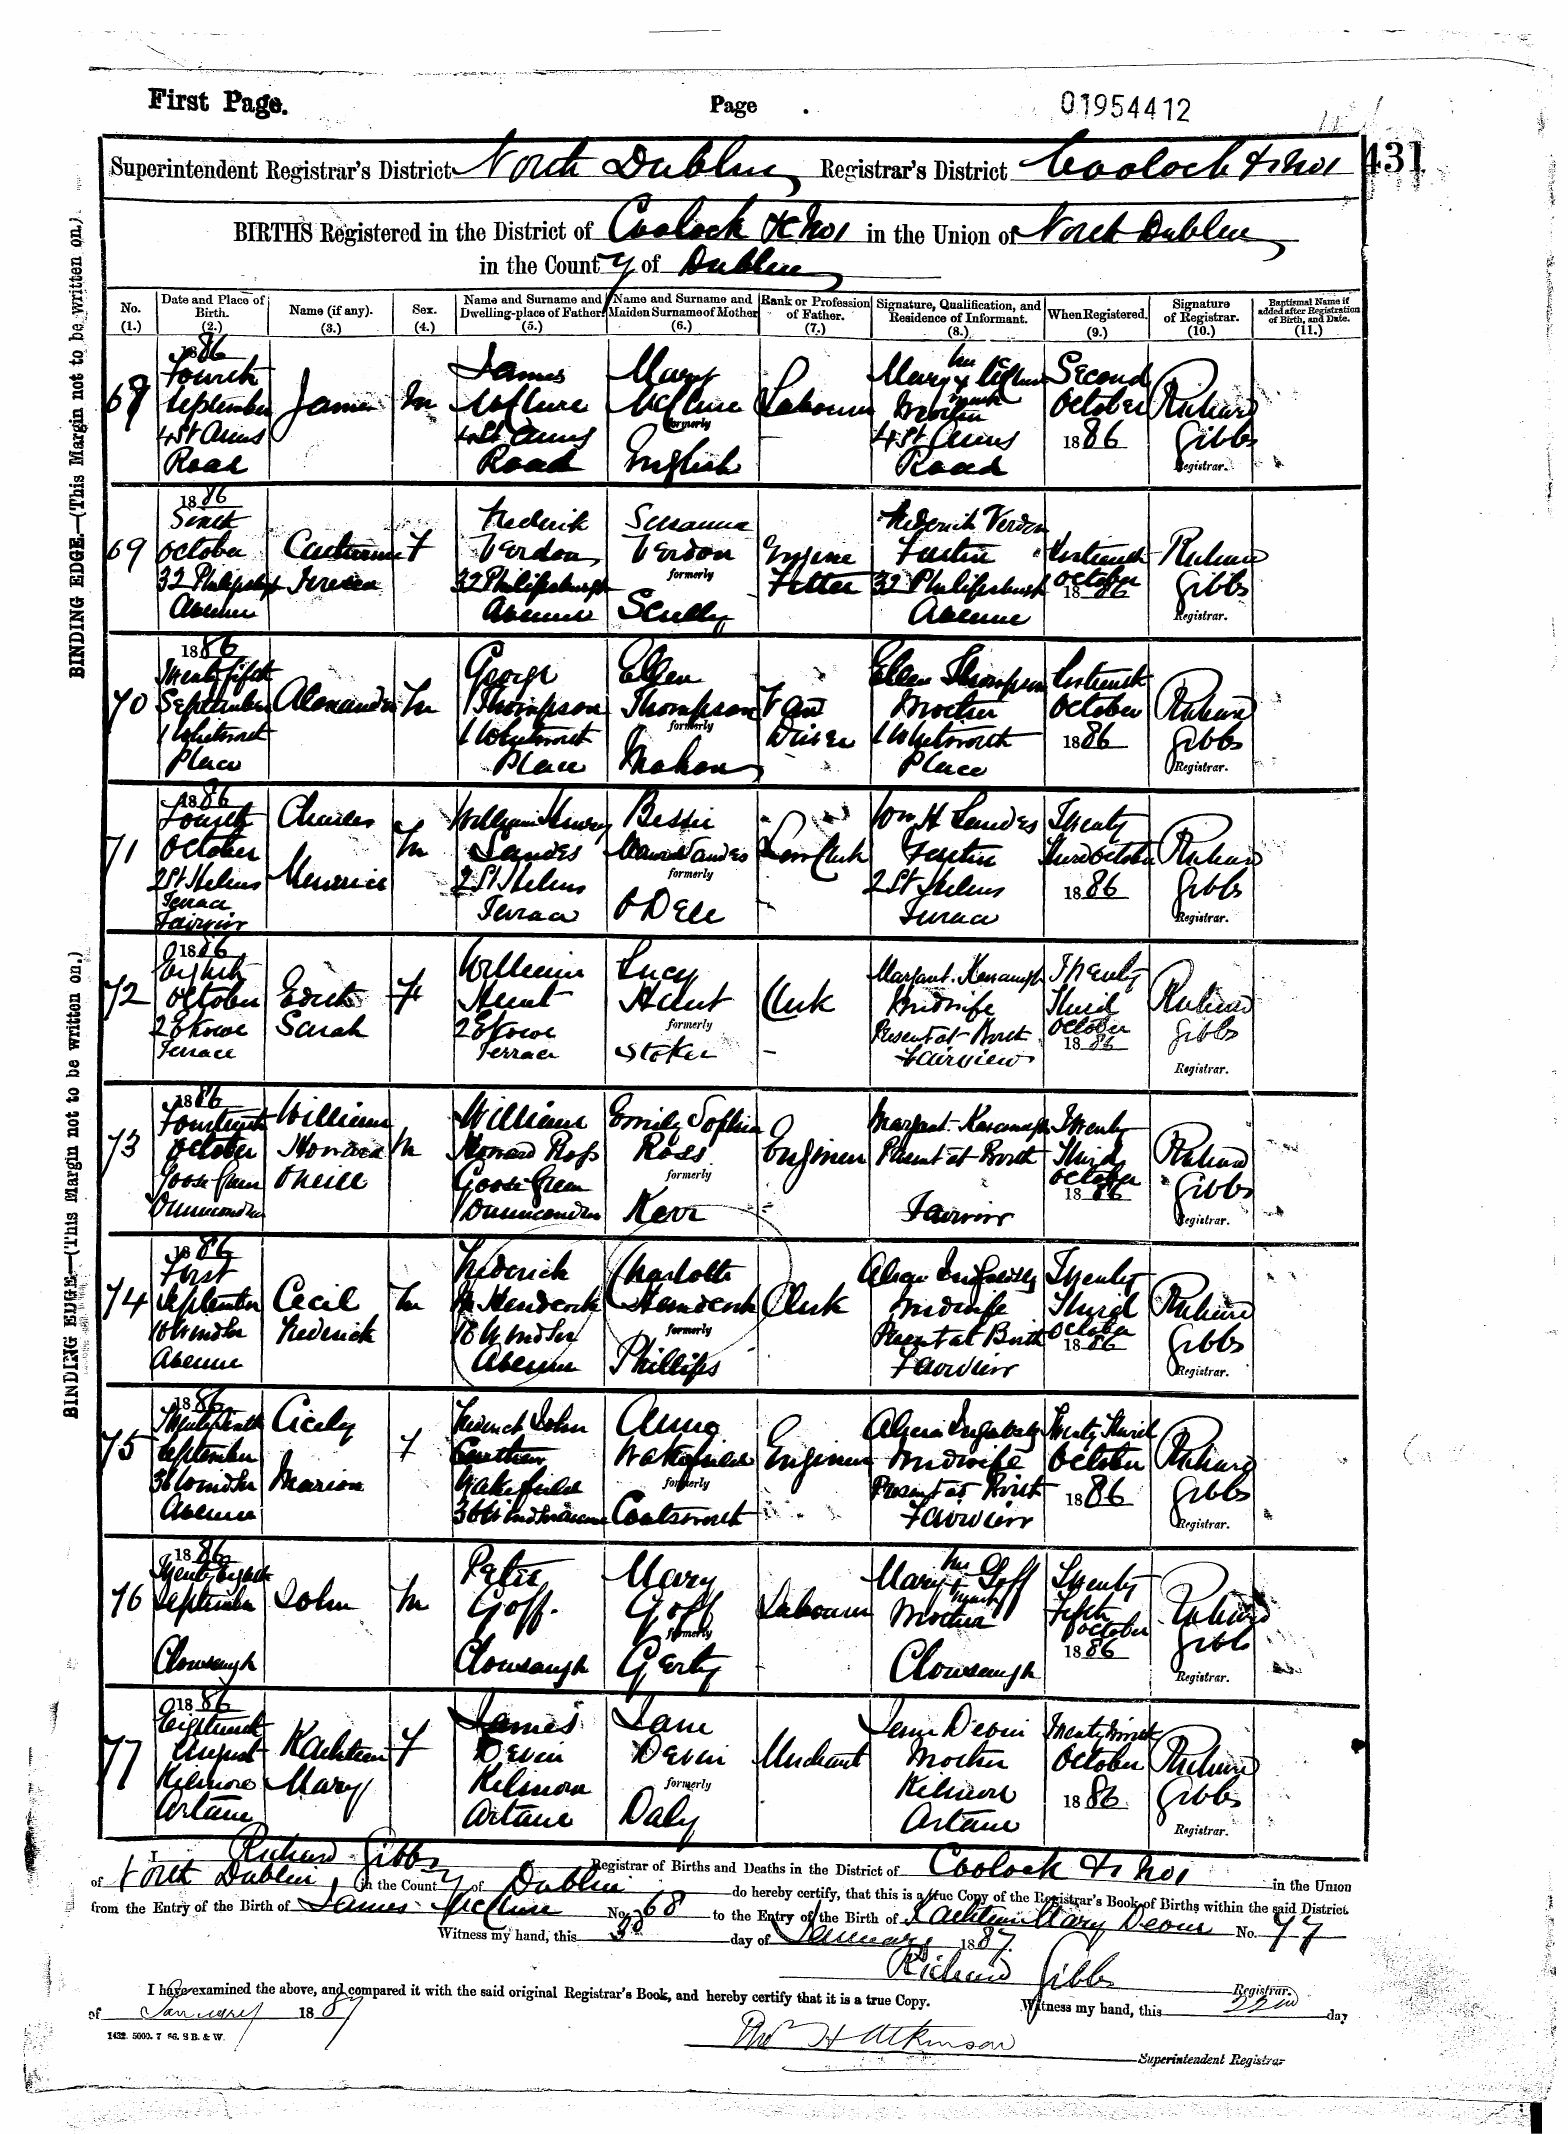 First Page.
Page
01954412
431
Superintendent Registrar's District North Dublin Registrar's District Coolock &c No 1
BIRTHS Registered in the District of Coolock &c No 1 in the Union of North Dublin
in the County of Dublin
BINDING EDGE.—(This Margin not to be written on.)
BINDING EDGE.—(This Margin not to be written on.)
No. (1.)
Date and Place of Birth. (2.)
Name (if any). (3.)
Sex. (4.)
Name and Surname and Dwelling-place of Father (5.)
Name and Surname and Maiden Surname of Mother (6.)
Rank or Profession of Father. (7.)
Signature, Qualification, and Residence of Informant. (8.)
When Registered. (9.)
Signature of Registrar. (10.)
Baptismal Name if added after Registration of Birth, and Date. (11.)
68
1886 Fourth September 4 St Anns Road
James
M
James McClure 4 St Anns Road
Mary McClure formerly English
Labourer
Mary x McClure her mark Mother 4 St Anns Road
Second October 1886
Richard Gibbs Registrar.
69
1886 October 32 Philipsburgh Avenue
Catherine Teresa
F
Frederick Verdon 32 Philipsburgh Avenue
Susanna Verdon formerly Scully
Engine Fitter
Frederick Verdon Father 32 Philipsburgh Avenue
October 1886
Richard Gibbs Registrar.
70
1886 Twenty fifth September 1 Whitworth Place
Alexander
M
George Thompson 1 Whitworth Place
Ellen Thompson formerly Mahon
Van Driver
Ellen Thompson Mother 1 Whitworth Place
October 1886
Richard Gibbs Registrar.
71
1886 Fourth October 2 St Helens Terrace Fairview
Charles Maurice
M
William Henry Landes 2 St Helens Terrace
Bessie Landes formerly O Dell
Clerk
Wm H Landes Father 2 St Helens Terrace
Twenty Third October 1886
Richard Gibbs Registrar.
72
1886 Eighth October 2 Terrace
Edith Sarah
F
William Hunt 2 Terrace
Lucy Hunt formerly Stoker
Clerk
Margaret Kavanagh Midwife Present at Birth Fairview
Twenty Third October 1886
Richard Gibbs Registrar.
73
1886 Fourteenth October Goose Green Drumcondra
William Howard ONeill
M
William Howard Ross Goose Green Drumcondra
Emily Sophia Ross formerly Kerr
Engineer
Margaret Kavanagh Present at Birth Fairview
Twenty Third October 1886
Richard Gibbs Registrar.
74
1886 First September 18 Windsor Avenue
Cecil Frederick
M
Frederick W Handcock 18 Windsor Avenue
Charlotte Handcock formerly Phillips
Clerk
Alicia Midwife Present at Birth Fairview
Twenty Third October 1886
Richard Gibbs Registrar.
75
1886 September 36 Windsor Avenue
Cicely Marion
F
Frederick John Wakefield 36 Windsor Avenue
Anna Wakefield formerly Coatsworth
Engineer
Alicia Midwife Present at Birth Fairview
Twenty Third October 1886
Richard Gibbs Registrar.
76
1886 Twenty Eighth September Clonshaugh
John
M
Peter Goff Clonshaugh
Mary Goff formerly Gerty
Labourer
Mary x Goff her mark Mother Clonshaugh
Twenty Fifth October 1886
Richard Gibbs Registrar.
77
1886 Eighteenth August Kilmore Artane
Kathleen Mary
F
James Devin Kilmore Artane
Jane Devin formerly Daly
Merchant
Jane Devin Mother Kilmore Artane
October 1886
Richard Gibbs Registrar.
I Richard Gibbs Registrar of Births and Deaths in the District of Coolock &c No 1 in the Union
of North Dublin in the County of Dublin do hereby certify, that this is a true Copy of the Registrar's Book of Births within the said District,
from the Entry of the Birth of James McClure No. 68 to the Entry of the Birth of Kathleen Mary Devin No. 77
Witness my hand, this day of January 1887.
Richard Gibbs Registrar.
I have examined the above, and compared it with the said original Registrar's Book, and hereby certify that it is a true Copy. Witness my hand, this 22nd day
of January 1887
Thos H Atkinson
Superintendent Registrar
1432. 5000. 7 86. S B. & W.